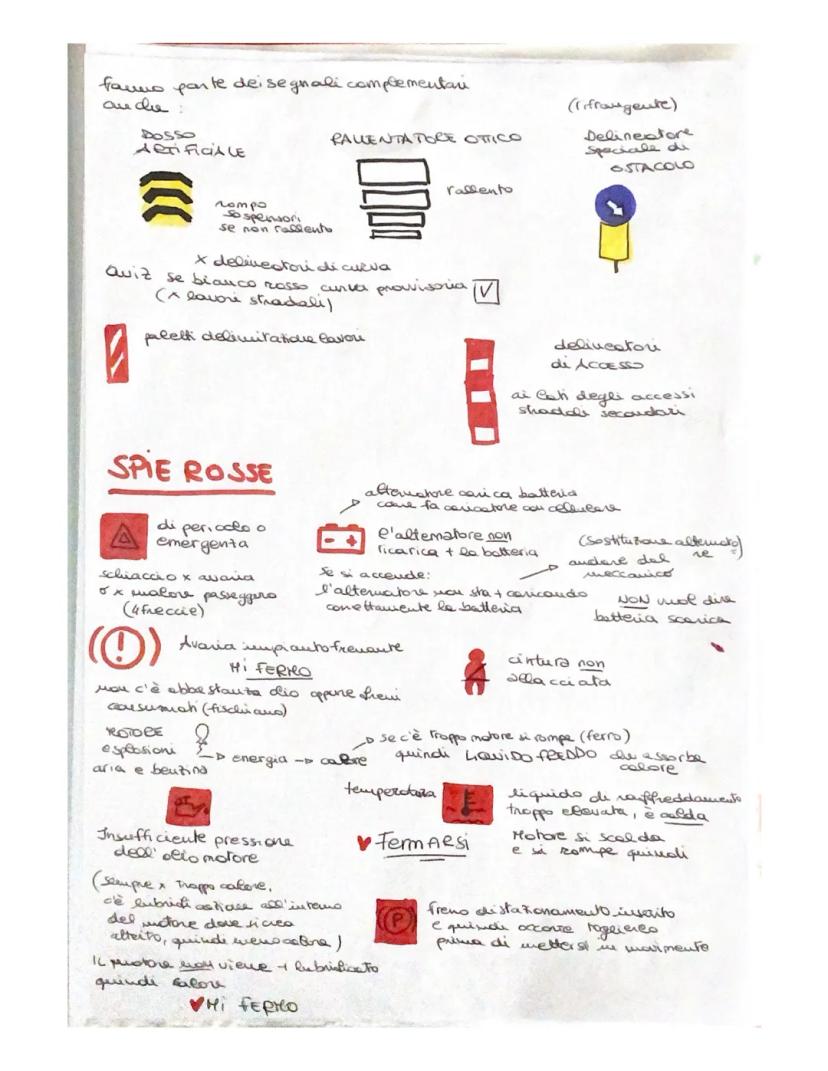 fanno parte dei segnali complementari
anche :
(rifrangente)
DOSSO
ARTIFICIALE
RALLENTATORE OTTICO
Delineatore
speciale di
OSTACOLO
rompo
sospensori
se non rallento
rallento
x delineatori di curva
Quiz se bianco rosso curva provvisoria V
(x lavori stradali)
paletti delimitazione lavori
delineatori
di ACCESSO
ai lati degli accessi
stradali secondari
SPIE ROSSE
alternatore carica batteria
come fa caricatore con cellulare
di pericolo o
emergenza
l'alternatore non
ricarica + la batteria
(sostituzione alternato
re =)
andare dal
meccanico
schiaccio x avaria
o x malore passeggero
(4 freccie)
se si accende:
l'alternatore non sta + caricando
correttamente la batteria
NON vuol dire
batteria scarica
(!) Avaria impianto frenante
Mi FERMO
non c'è abbastanza olio oppure freni
consumati (fischiano)
cintura non
allacciata
MOTORE
esplosioni
aria e benzina
energia → calore
se c'è troppo motore si rompe (ferro)
quindi LIQUIDO FREDDO che assorbe
calore
temperatura
liquido di raffreddamento
troppo elevata, è calda
Insufficiente pressione
dell'olio motore
FERMARSI
Motore si scalda
e si rompe quindi
(sempre x troppo calore,
c'è all'interno
del motore dove si crea
attrito, quindi meno calore)
P
freno di stazionamento inserito
e quindi occorre toglierlo
prima di mettersi in movimento
IL motore non viene + lubrificato
quindi calore
Mi FERMO